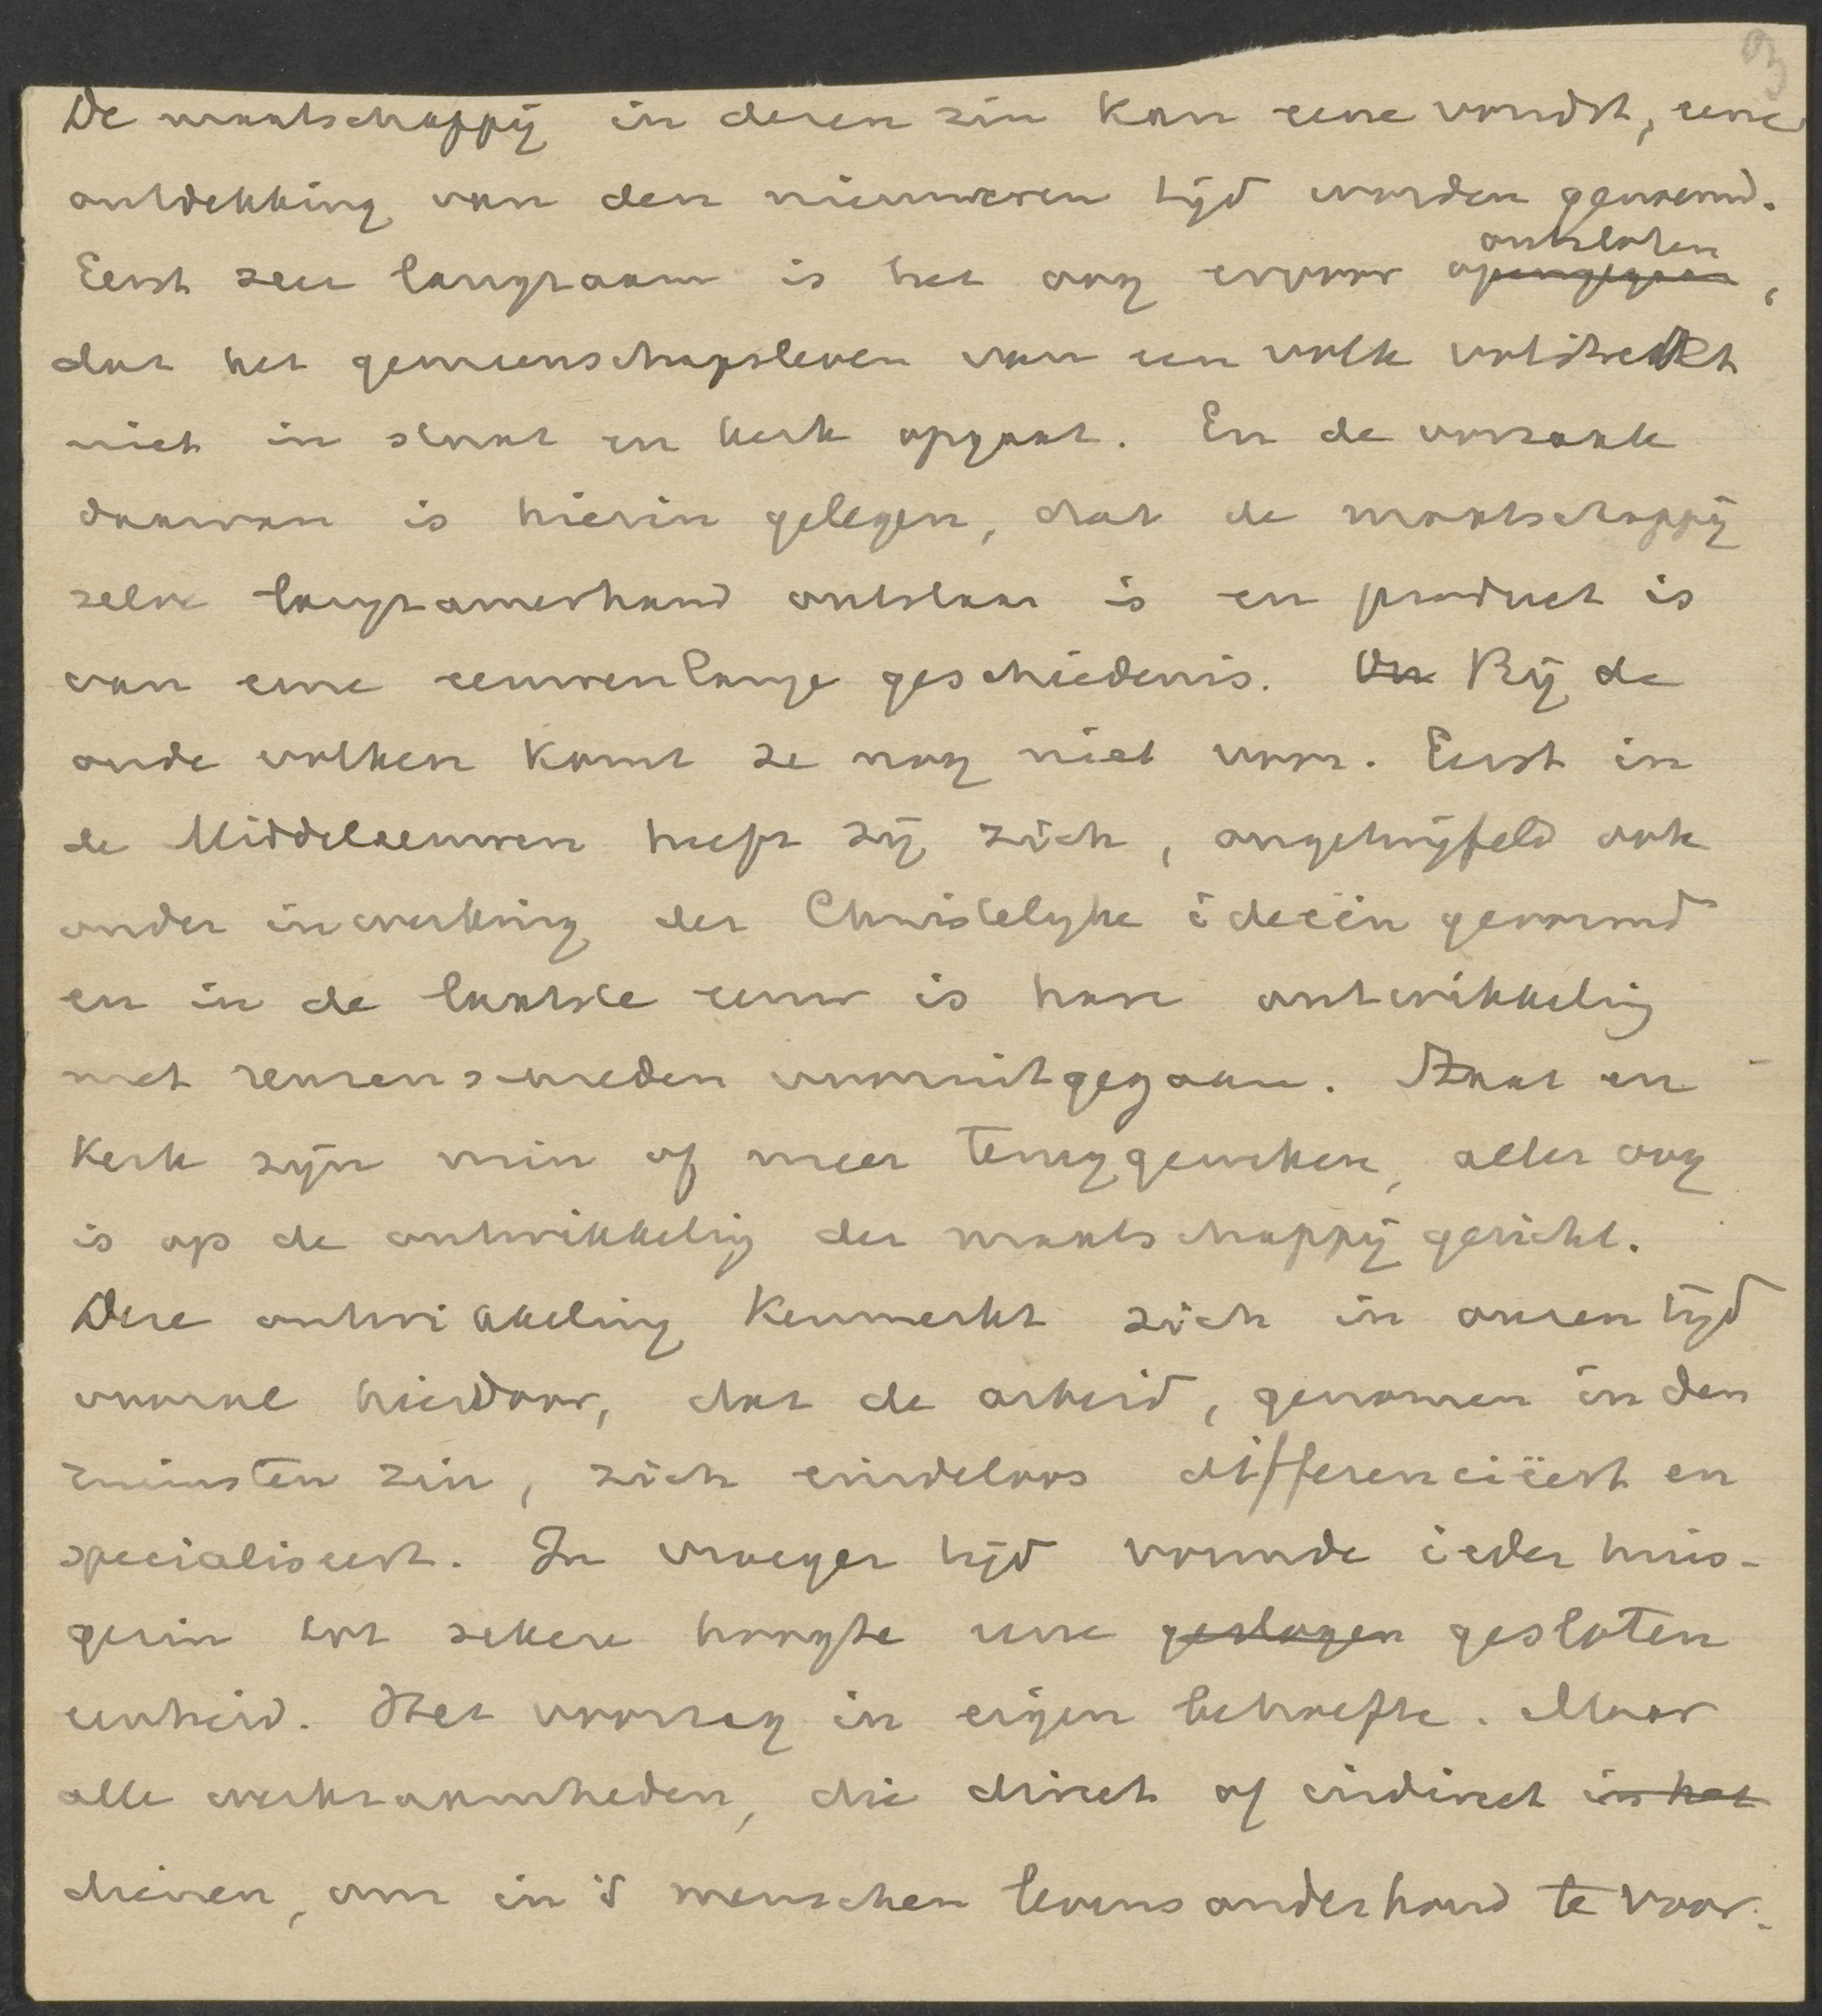 3
De maatschappij in dezen zin kan eene vondst, eene
ontdekking van den nieuweren tijd worden genoemd.
ontsloten
Eerst zeer langzaam is het oog ervoor opengegaan,
dat het gemeenschapsleven van een volk volstrekt
niet in staat en kerk opgaat. En de oorzaak
daarvan is hierin gelegen, dat de maatschappij
zelve langzamerhand ontstaan is en product is
van eene eeuwenlange geschiedenis. On Bij de
oude volken komt ze nog niet voor. Eerst in
de Middeleeuwen heeft zij zich, ongetwijfeld ook
onder inwerking der Christelyke ideeën gevormd
en in de laatste eeuw is hare ontwikkeling
met reuzenschreden vooruitgegaan. Staat en
Kerk zijn min of meer teruggeweken, aller oog
is op de ontwikkeling der maatschappij gericht.
Deze ontwikkeling kenmerkt zich in onzen tijd
vooral hierdoor, dat de arbeid, genomen in den
ruimsten zin, zich eindeloos differenciëert en
specialiseert. In vroeger tijd vormde ieder huis-
gezin tot zekere hoogte eene geslagen gesloten
eenheid. Het voorzag in eigen behoefte. Maar
alle werkzaamheden, die direct of indirect in het
dienen, om in 's menschen levensonderhoud te voor-